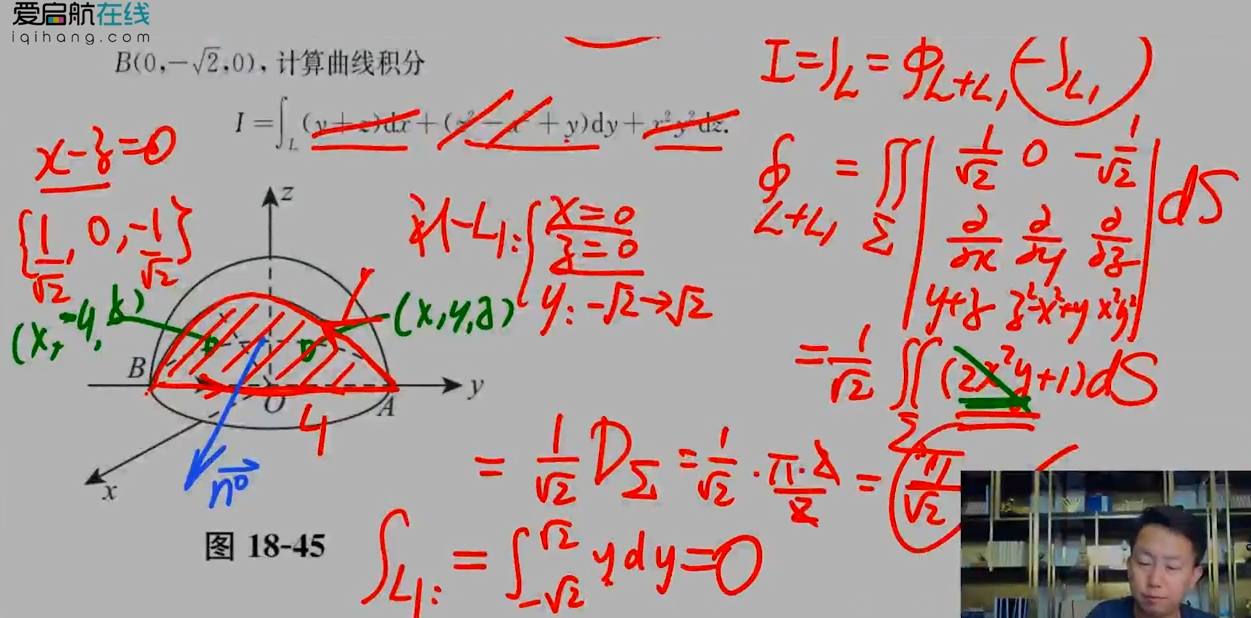 爱启航在线
iqihang.com
B(0,-√2,0), 计算曲线积分
I=∫_L (y+z)dx+(z²-x²+y)dy+x²y²dz.
x-z=0
{1/√2, 0, -1/√2}
(x,-y,z)
(x,y,z)
z
B
O
A
y
x
L₁
n⁰
图 18-45
补L₁: {x=0
z=0
y: -√2→√2
I=∫_L=∮_{L+L₁}(-∫_{L₁})
∮_{L+L₁}=∬_Σ | 1/√2 0 -1/√2 | dS
∂/∂x ∂/∂y ∂/∂z
y+z z²-x²+y x²y²
=1/√2 ∬_Σ (2x²y+1)dS
=1/√2 D_Σ=1/√2·π·2/2=π/√2
∫_{L₁:}=∫_{-√2}^{√2} y dy=0